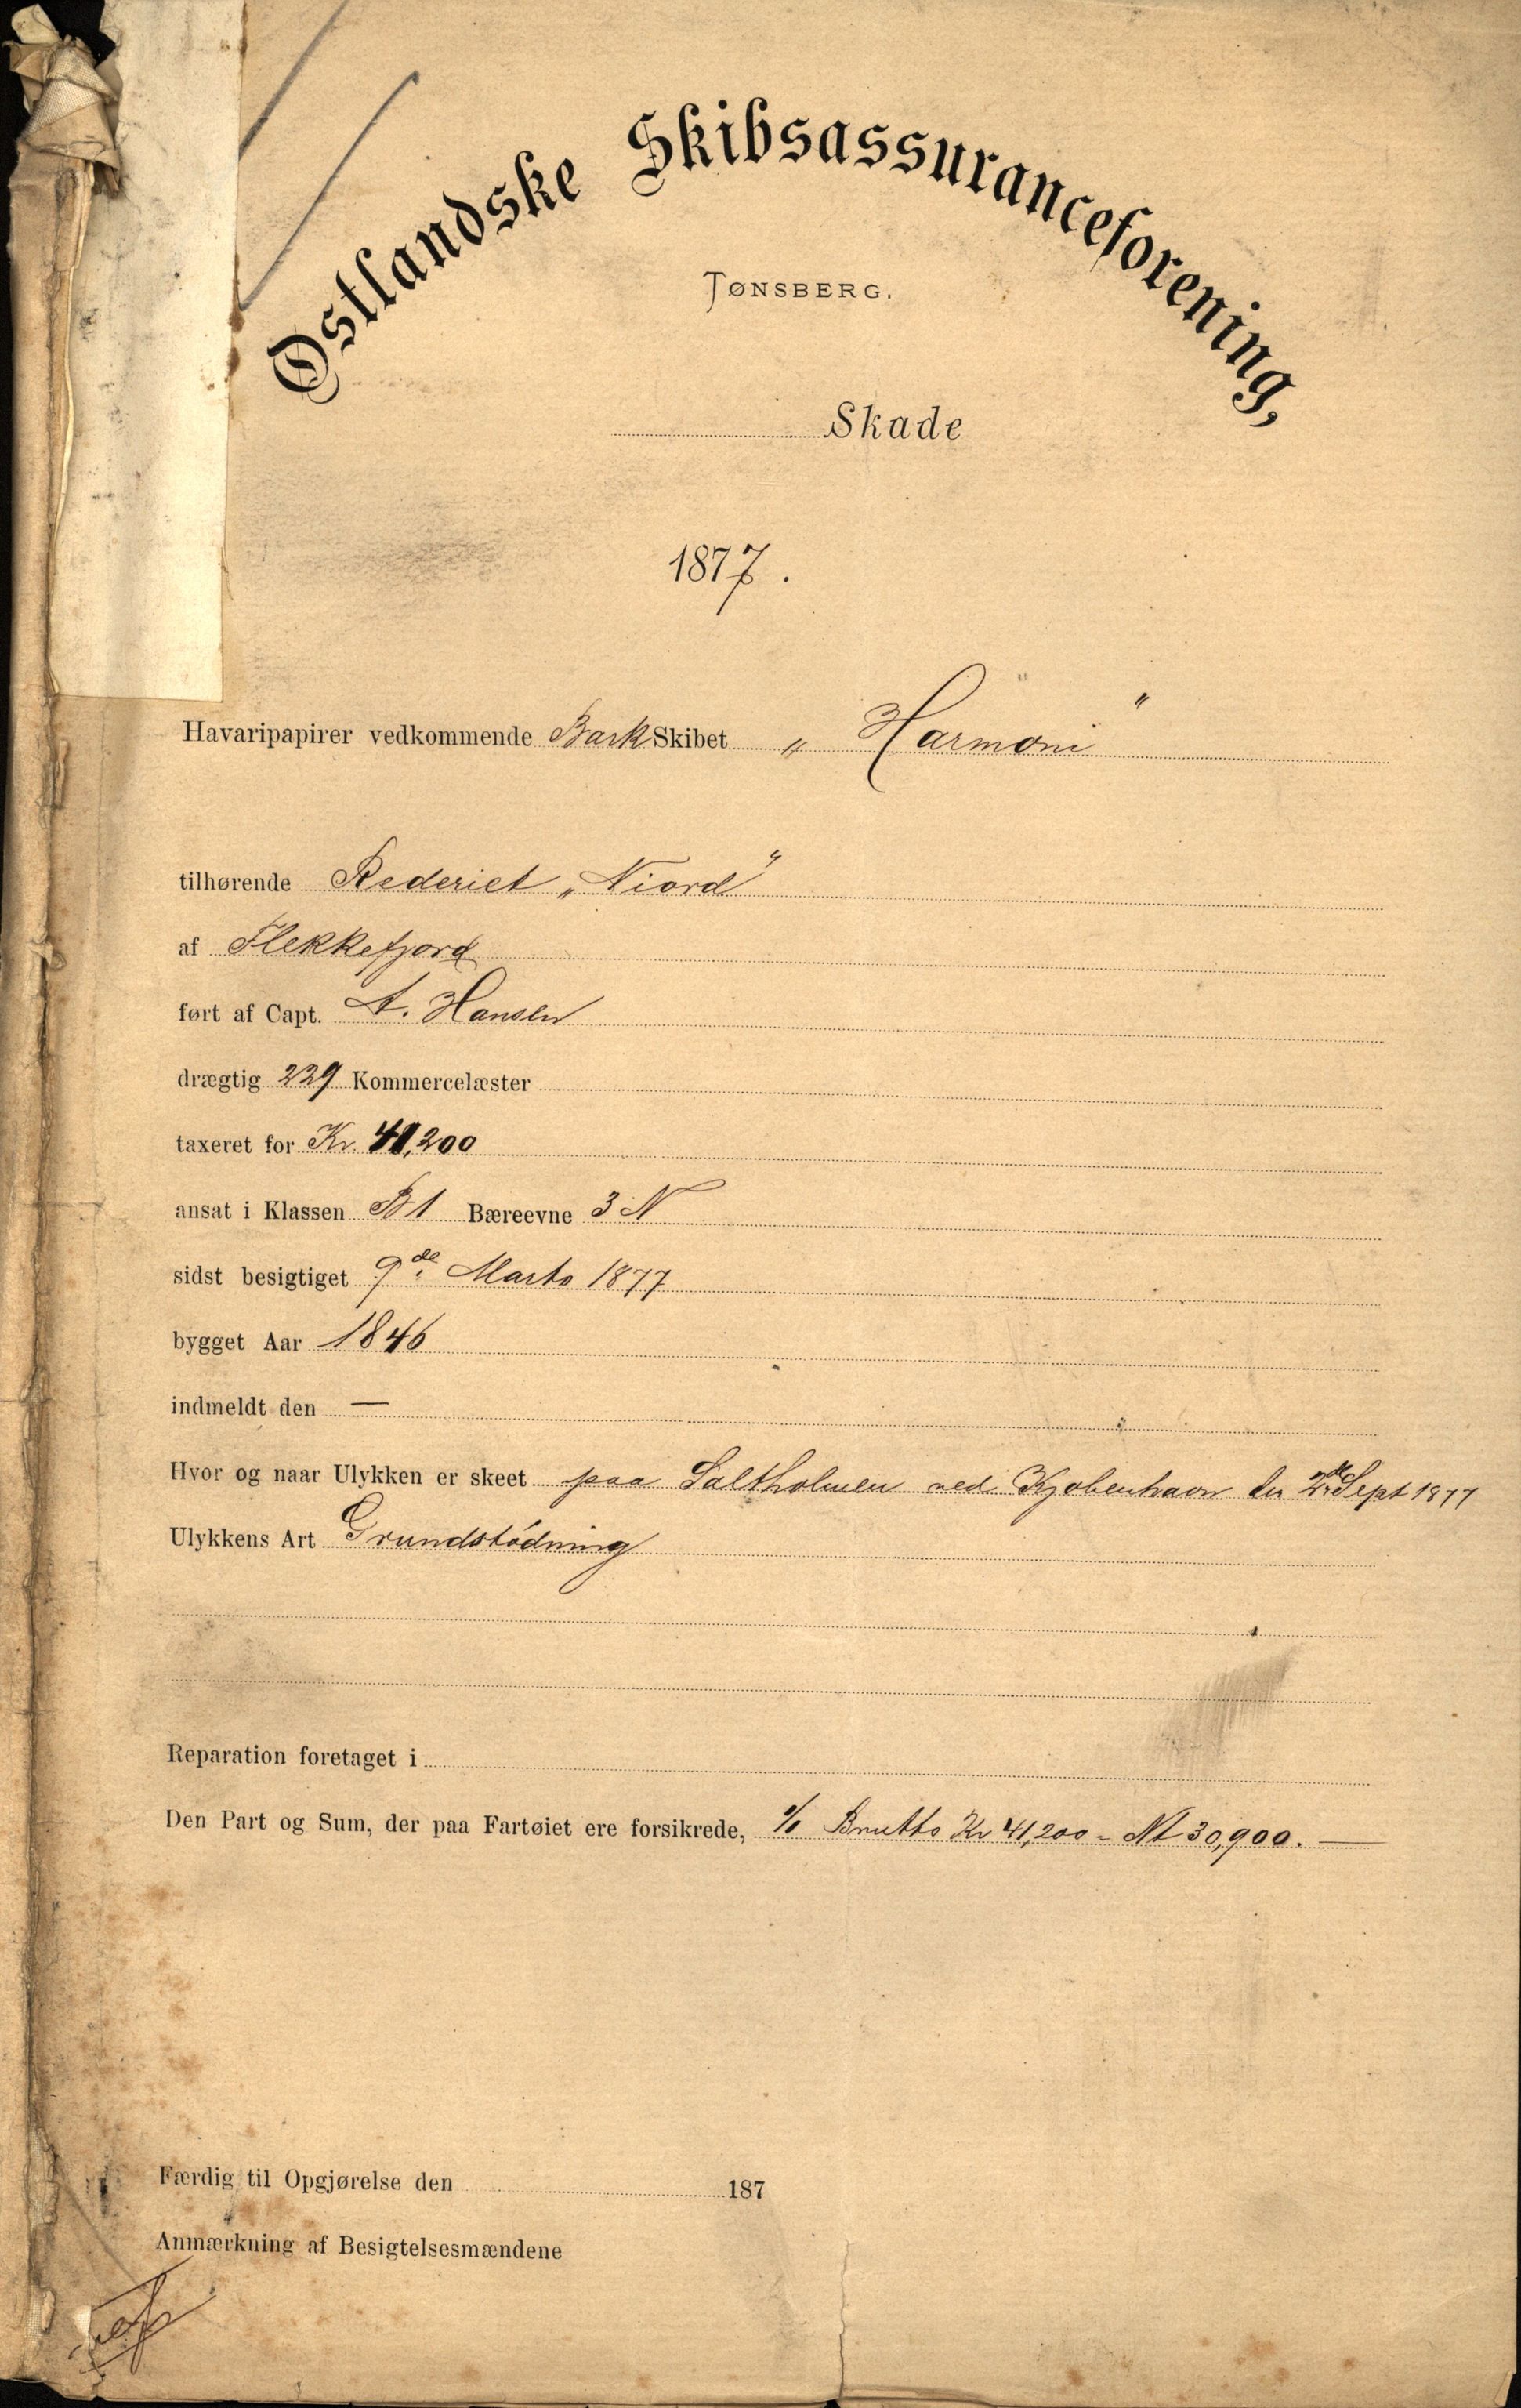 Østlandske Skibsassuranceforening,
TØNSBERG.
Skade
1877.
Havaripapirer vedkommende Bark Skibet „ Harmoni "
tilhørende Rederiet „Niord"
af Flekkefjord
ført af Capt. A. Hansen
drægtig 229 Kommercelæster
taxeret for Kr. 41,200
ansat i Klassen B1 Bæreevne 3 N
sidst besigtiget 9de Marts 1877
bygget Aar 1846
indmeldt den —
Hvor og naar Ulykken er skeet paa Saltholmen ved Kjøbenhavn den 2de Sept 1877
Ulykkens Art Grundstødning
Reparation foretaget i
Den Part og Sum, der paa Fartøiet ere forsikrede, 1/1 Brutto Kr 41,200 - Nt 30,900. —
Færdig til Opgjørelse den 187
Anmærkning af Besigtelsesmændene